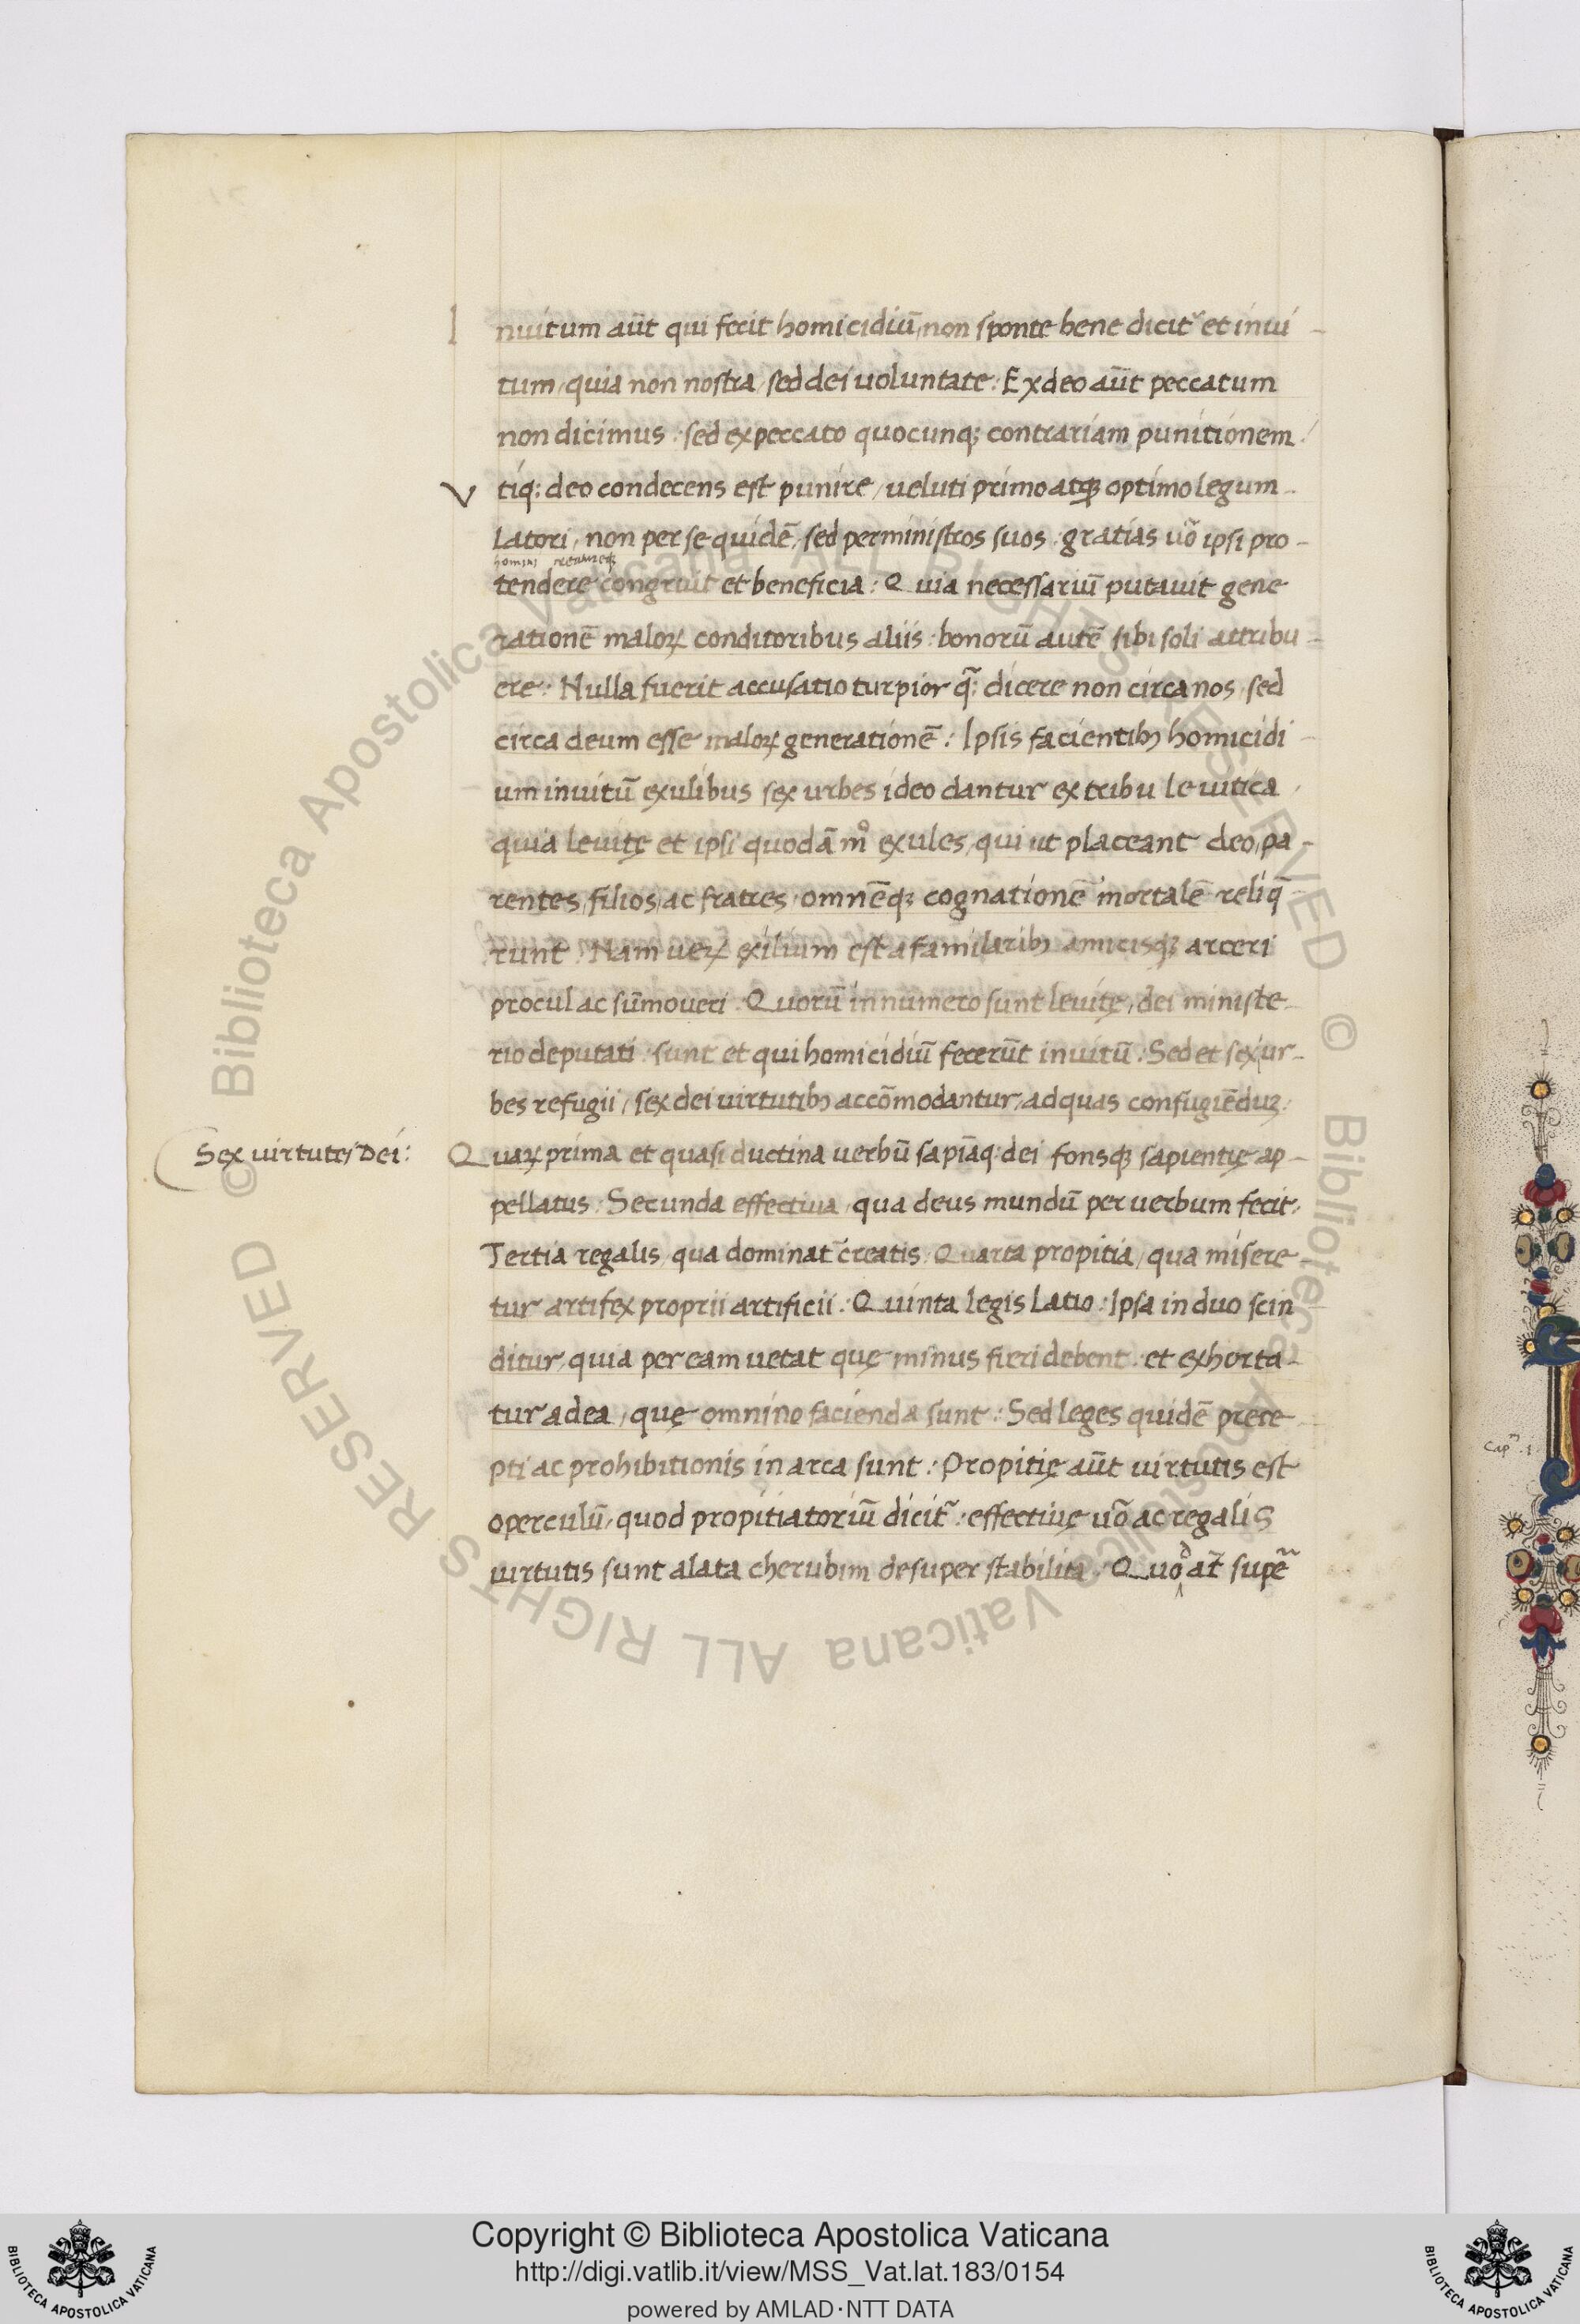 Inuitum aūt qui fecit homicidiū, non sponte bene dicit᷑ et inui
tum, quia non nostra, sed dei uoluntate: Ex deo aūt peccatum
non dicimus: sed ex peccato quocunq; contrariam punitionem:
Vtiq; deo condecens est punire, ueluti primo atqꝫ optimo legum
Latori, non per se quidē, sed per ministros suos: gratias uō ipsi pro-
homini
tendere congruit et beneficia: Quia necessariū putauit gene
rationē maloꝝ conditoribus aliis: bonorū autē sibi soli attribu
ere: Nulla fuerit accusatio turpior q̃; dicere non circa nos, sed
circa deum esse maloꝝ generationē: Ipsis facientibꝰ homicidi
um inuitū exulibus sex urbes ideo dantur ex tribu leuitica,
quia leuitę et ipsi quodā mº exules, qui ut placeant deo, pa-
rentes, filios, ac fratres, omnēqꝫ cognationē mortalē reliq̄
runt: Nam ueꝝ exilium est a familaribꝰ amicisqꝫ arceri
procul ac sūmoueri: Quorū in numero sunt leuitę, dei ministe
rio deputati: sunt et qui homicidiū fecerūt inuitū: Sed et sex ur-
bes refugii, sex dei uirtutibꝰ accōmodantur, ad quas confugiēduꝫ:
Sex uirtutes Dei:
Quaꝝ prima et quasi ductina uerbū sapiāq; dei fonsqꝫ sapientię ap-
pellatus: Secunda effectiua, qua deus mundū per uerbum fecit:
Tertia regalis, qua dominat᷑ creatis: Quarta propitia, qua misere
tur artifex proprii artificii: Quinta legis Latio: Ipsa in duo scin
ditur, quia per eam uetat quę minus fieri debent: et exhorta-
tur ad ea, quę omnino facienda sunt: Sed leges quidē prece
pti ac prohibitionis in arca sunt: Propitię aūt uirtutis est
operculū, quod propitiatoriū dicit᷑: effectiuę uō ac regalis
uirtutis sunt alata cherubim desuper stabilita: Quod at̄ supē
Cap^m. 1
Copyright © Biblioteca Apostolica Vaticana
http://digi.vatlib.it/view/MSS_Vat.lat.183/0154
powered by AMLAD·NTT DATA
BIBLIOTECA APOSTOLICA VATICANA
BIBLIOTECA APOSTOLICA VATICANA
© Biblioteca Apostolica Vaticana ALL RIGHTS RESERVED © Biblioteca Apostolica Vaticana ALL RIGHTS RESERVED